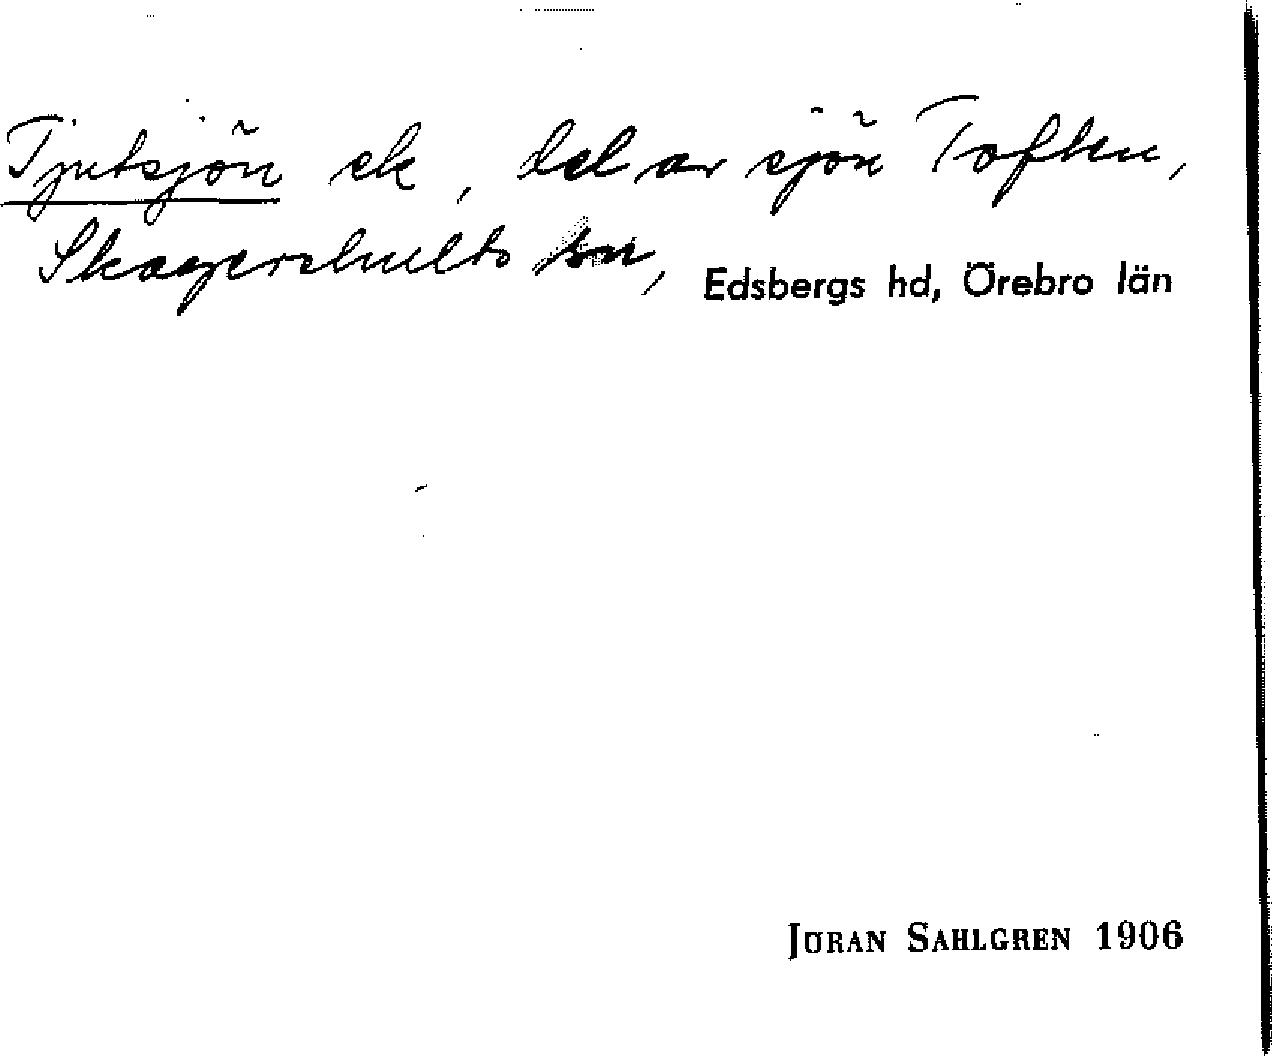 Tjutsjön ek, del av sjön Toften,
Skagershults sn, Edsbergs hd, Örebro län
JÖRAN SAHLGREN 1906